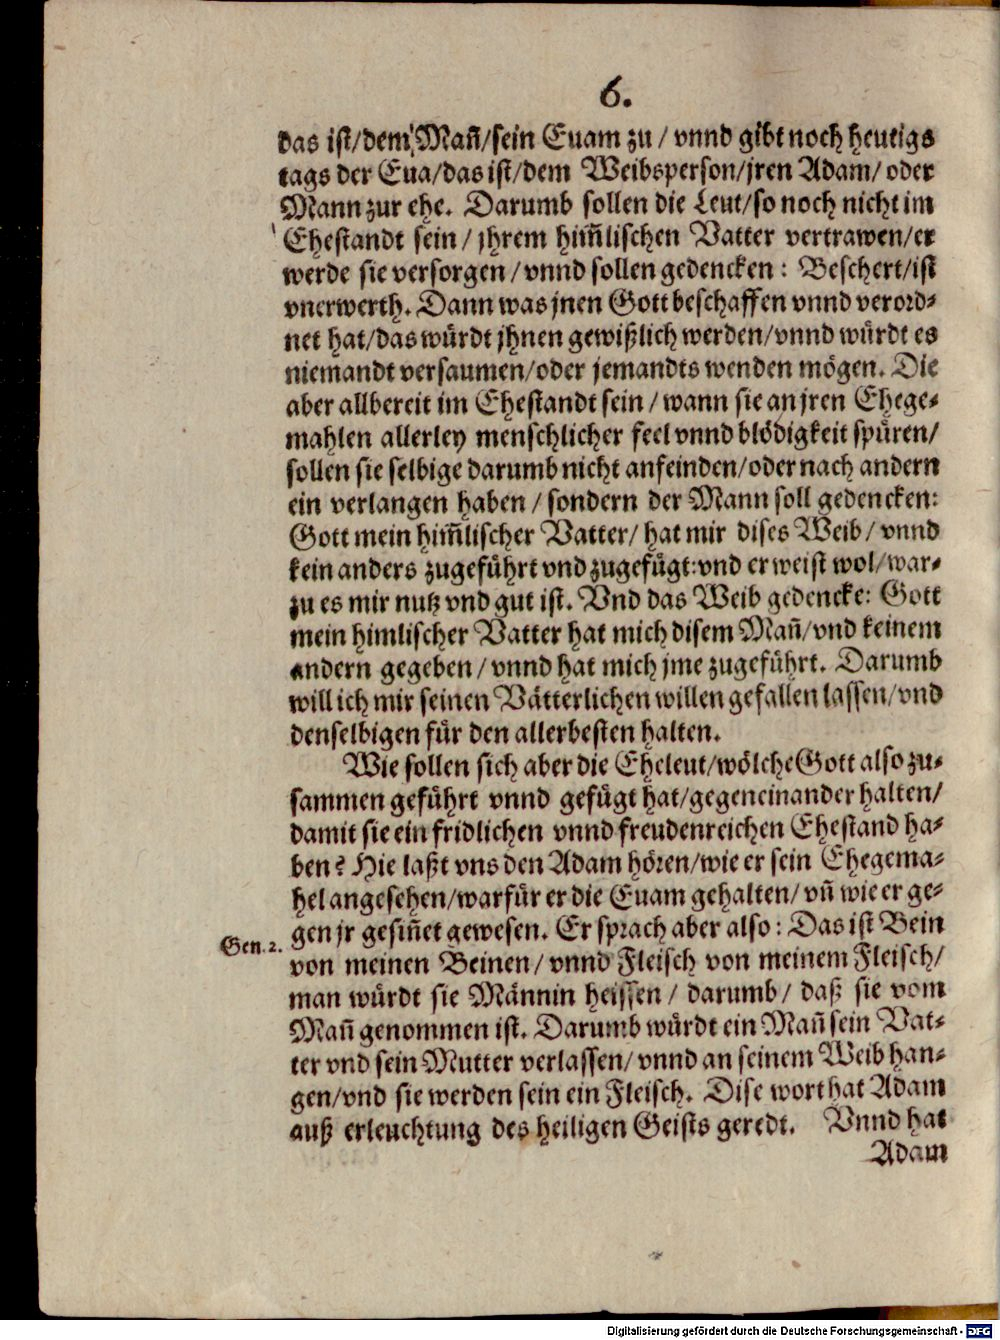 6.
das ist/dem Mañ/sein Euam zu / vnnd gibt noch heutigs
tags der Eua/das ist/dem Weibsperson/jren Adam/ oder
Mann zur ehe. Darumb sollen die Leut/so noch nicht im
Ehestandt sein / jhrem him̃lischen Vatter vertrawen/er
werde sie versorgen / vnnd sollen gedencken : Beschert/ist
vnerwerth. Dann was jnen Gott beschaffen vnnd verord-
net hat/das würdt jhnen gewißlich werden/vnnd würdt es
niemandt versaumen/oder jemandts wenden mögen. Die
aber allbereit im Ehestandt sein / wann sie an jren Ehege-
mahlen allerley menschlicher feel vnnd blödigkeit spüren/
sollen sie selbige darumb nicht anfeinden/oder nach andern
ein verlangen haben / sondern der Mann soll gedencken:
Gott mein him̃lischer Vatter/ hat mir dises Weib / vnnd
kein anders zugeführt vnd zugefügt:vnd er weist wol/war-
zu es mir nutz vnd gut ist. Vnd das Weib gedencke: Gott
mein himlischer Vatter hat mich disem Mañ/vnd keinem
andern gegeben / vnnd hat mich jme zugeführt. Darumb
will ich mir seinen Vätterlichen willen gefallen lassen/vnd
denselbigen für den allerbesten halten.
Wie sollen sich aber die Eheleut/wölche Gott also zu-
sammen geführt vnnd gefügt hat/gegeneinander halten/
damit sie ein fridlichen vnnd freudenreichen Ehestand ha-
ben? Hie laßt vns den Adam hören/wie er sein Ehegema-
hel angesehen/warfür er die Euam gehalten/ vñ wie er ge-
gen jr gesiñet gewesen. Er sprach aber also : Das ist Bein
Gen. 2.
von meinen Beinen/ vnnd Fleisch von meinem Fleisch/
man würdt sie Männin heissen / darumb / daß sie vom
Mañ genommen ist. Darumb würdt ein Mañ sein Vat-
ter vnd sein Mutter verlassen/ vnnd an seinem Weib han-
gen/vnd sie werden sein ein Fleisch. Dise wort hat Adam
auß erleuchtung des heiligen Geists geredt. Vnnd hat
Adam
Digitalisierung gefördert durch die Deutsche Forschungsgemeinschaft - DFG